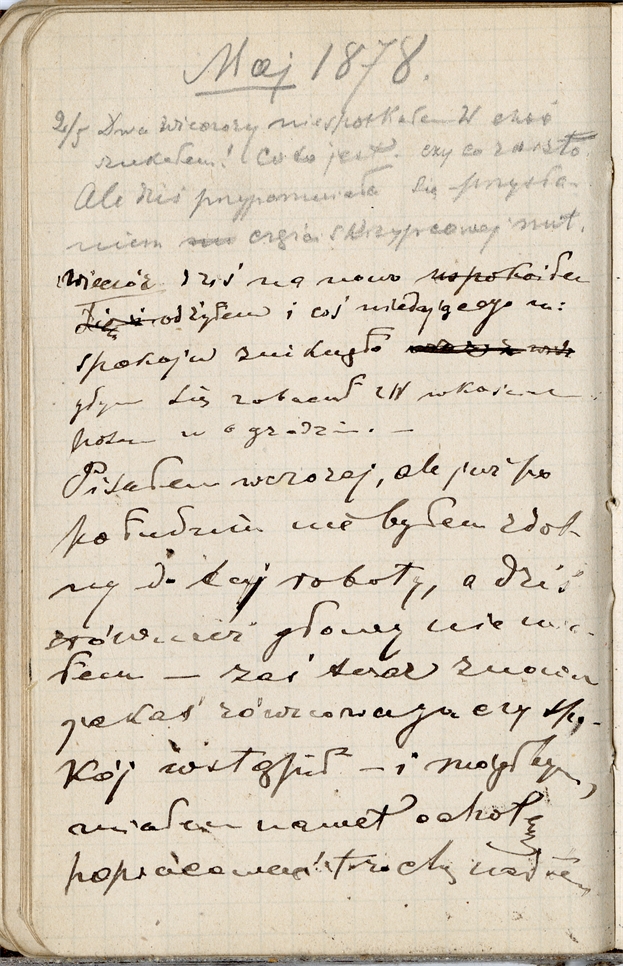 Maj 1878.
2/5 Dwa wieczory niespotkałem W choć
szukałem! Co to jest. czy co zaszło.
Ale dziś przypomniała się przysła-
niem częścią skrzypcowej nut.
Wieczór dziś na nowo uspokoiłem
się i odżyłem i coś niedającego mi
spokoju znikнęło
gdym się zobaczył z W
w ogrodzie. —
Pisałem wczoraj, ale już po
południu nie byłem zdol-
ny do tej roboty, a dziś
również głowy nie mia-
łem — zaś teraz znowu
jakaś równowaga czy spo-
kój wstąpił — i mógłbym,
miałem nawet ochotę
popracować trochę nad